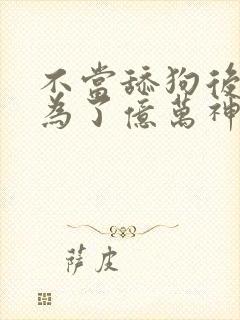 不當舔狗後
為了億萬神
萨皮